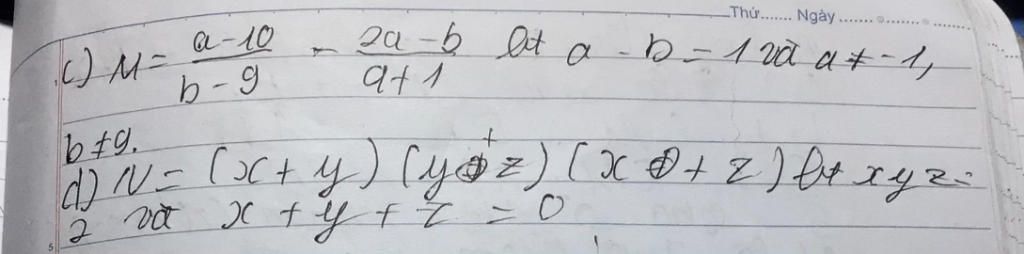 Thứ....... Ngày ...................
c) M = \frac{a-10}{b-9} - \frac{2a-b}{a+1} bt a - b = 1 và a ≠ -1,
b ≠ 9.
d) N = (x + y) (y + z) (x + z) bt xyz =
2 và x + y + z = 0
5